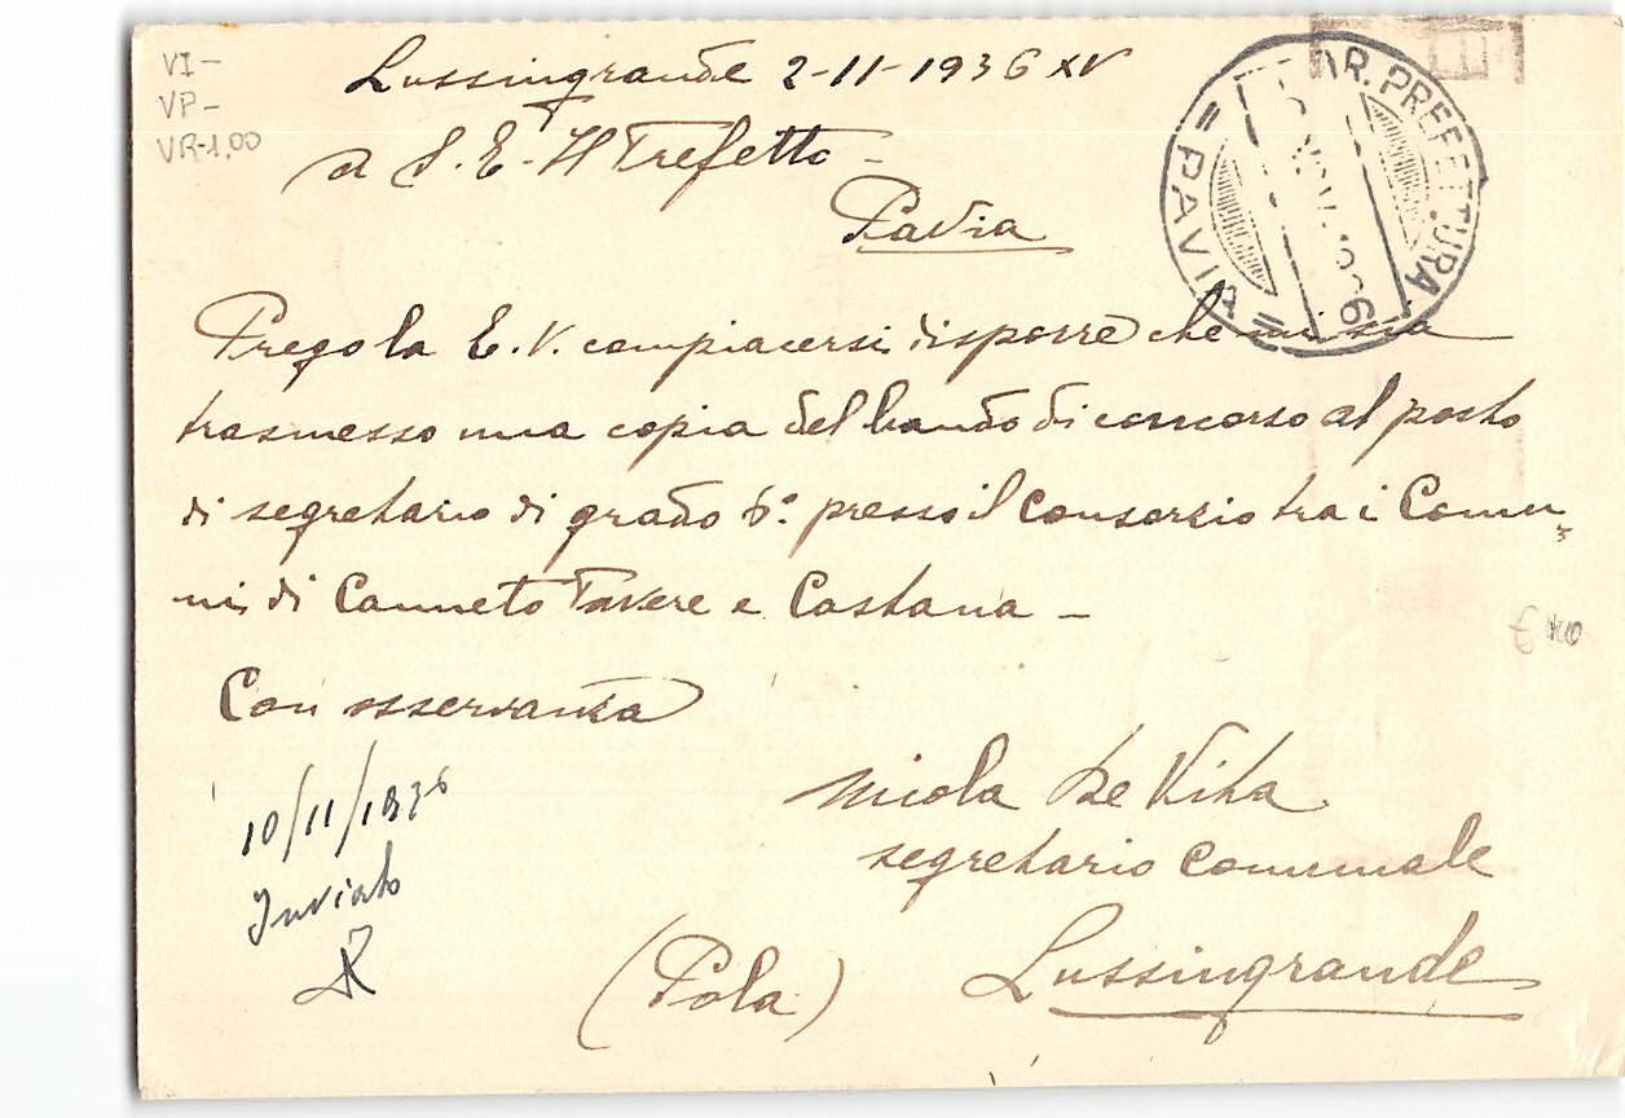 VI-
VP-
VR-1,00
Lussingrande 2-11-1936 XV
A S. E. Il Prefetto -
Pavia
R. PREFETTURA
= PAVIA =
Prego la E.V. compiacersi disporre che mi sia
trasmesso una copia del bando di concorso al posto
di segretario di grado 6° presso il Consorzio tra i Comu=
ni di Canneto Pavese e Castana -
Con osservanza
10/11/1936
Inviato
Nicola De Vita
segretario Comunale
(Pola)
Lussingrande